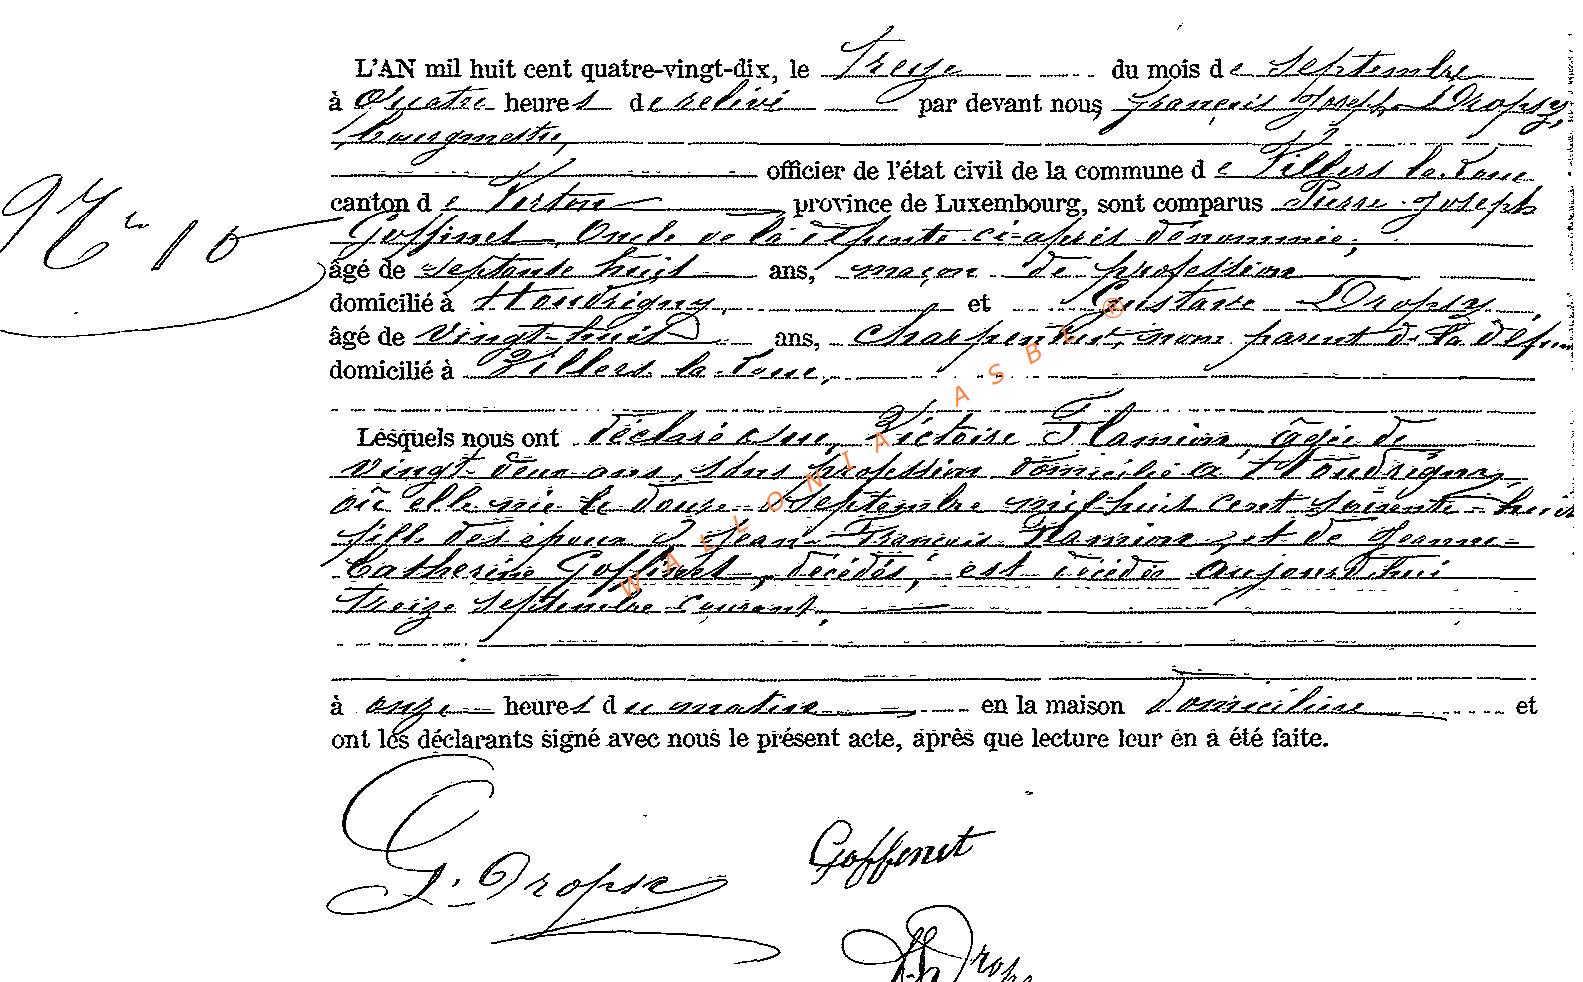 L'AN mil huit cent quatre-vingt-dix, le Treize du mois de Septembre
à Quatre heures de relevé par devant nous, François Joseph Dropsy,
bourgmestre,
officier de l'état civil de la commune de Villers la-Loue
canton de Virton province de Luxembourg, sont comparus Pierre-Joseph
Goffinet, Oncle de la défunte ci-après dénommée,
N° 10
âgé de septante huit ans, maçon de profession
domicilié à Houdrigny, et Gustave Dropsy
âgé de vingt-huit ans, charpentier, non parent de la défun
domicilié à Villers la-Loue,
Lesquels nous ont déclaré que, Victoire Flamion, âgée de
vingt-deux ans, sans profession domicilié à Houdrigny,
où elle née le douze Septembre mil-huit cent soixante-huit
fille des époux Jean-François Flamion, et de Jeanne-
Catherine Goffinet, décédés, est décédée aujourd'hui
treize septembre courant,
à onze heures du matin en la maison Domiciliaire et
ont les déclarants signé avec nous le présent acte, après que lecture leur en a été faite.
WALLONIA ASBL ®
G. Dropsy Goffinet
Dropsy